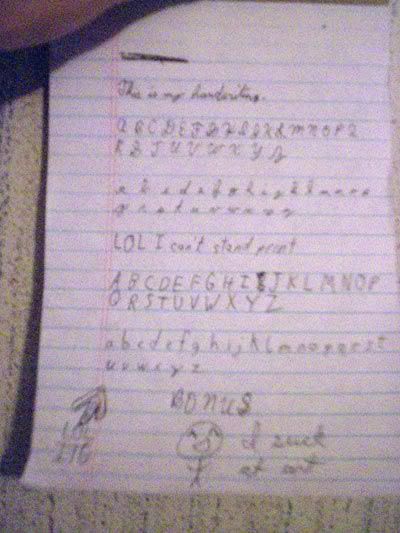 This is my handwriting.
A B C D E F G H I J K L M N O P Q
R S T U V W X Y Z
a b c d e f g h i j k l m n o p
q r s t u v w x y z
LOL I can't stand print
A B C D E F G H I J K L M N O P
Q R S T U V W X Y Z
a b c d e f g h i j k l m n o p q r s t
u v w x y z
BONUS
I suck
at art